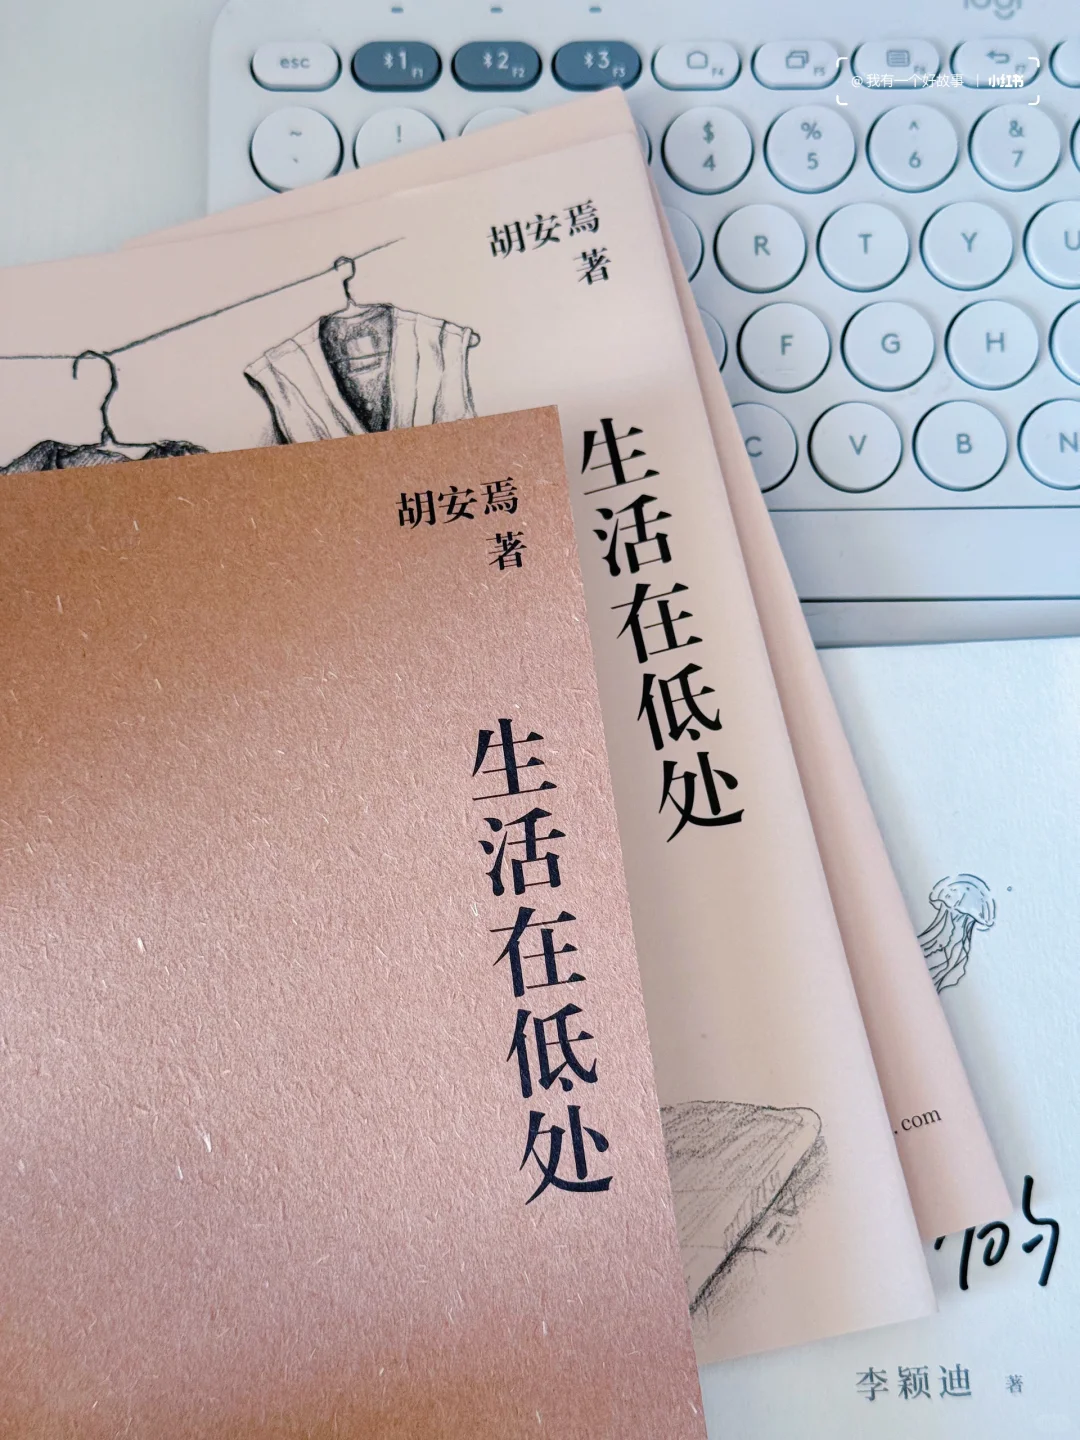 logi
esc
1 F1
2 F2
3 F3
F4
F5
@我有一个好故事 | 小红书
~
`
!
$
4
%
5
^
6
&
7
R
T
Y
U
F
G
H
C
V
B
N
胡安焉
著
生活在低处
胡安焉
著
生活在低处
.com
李颖迪 著